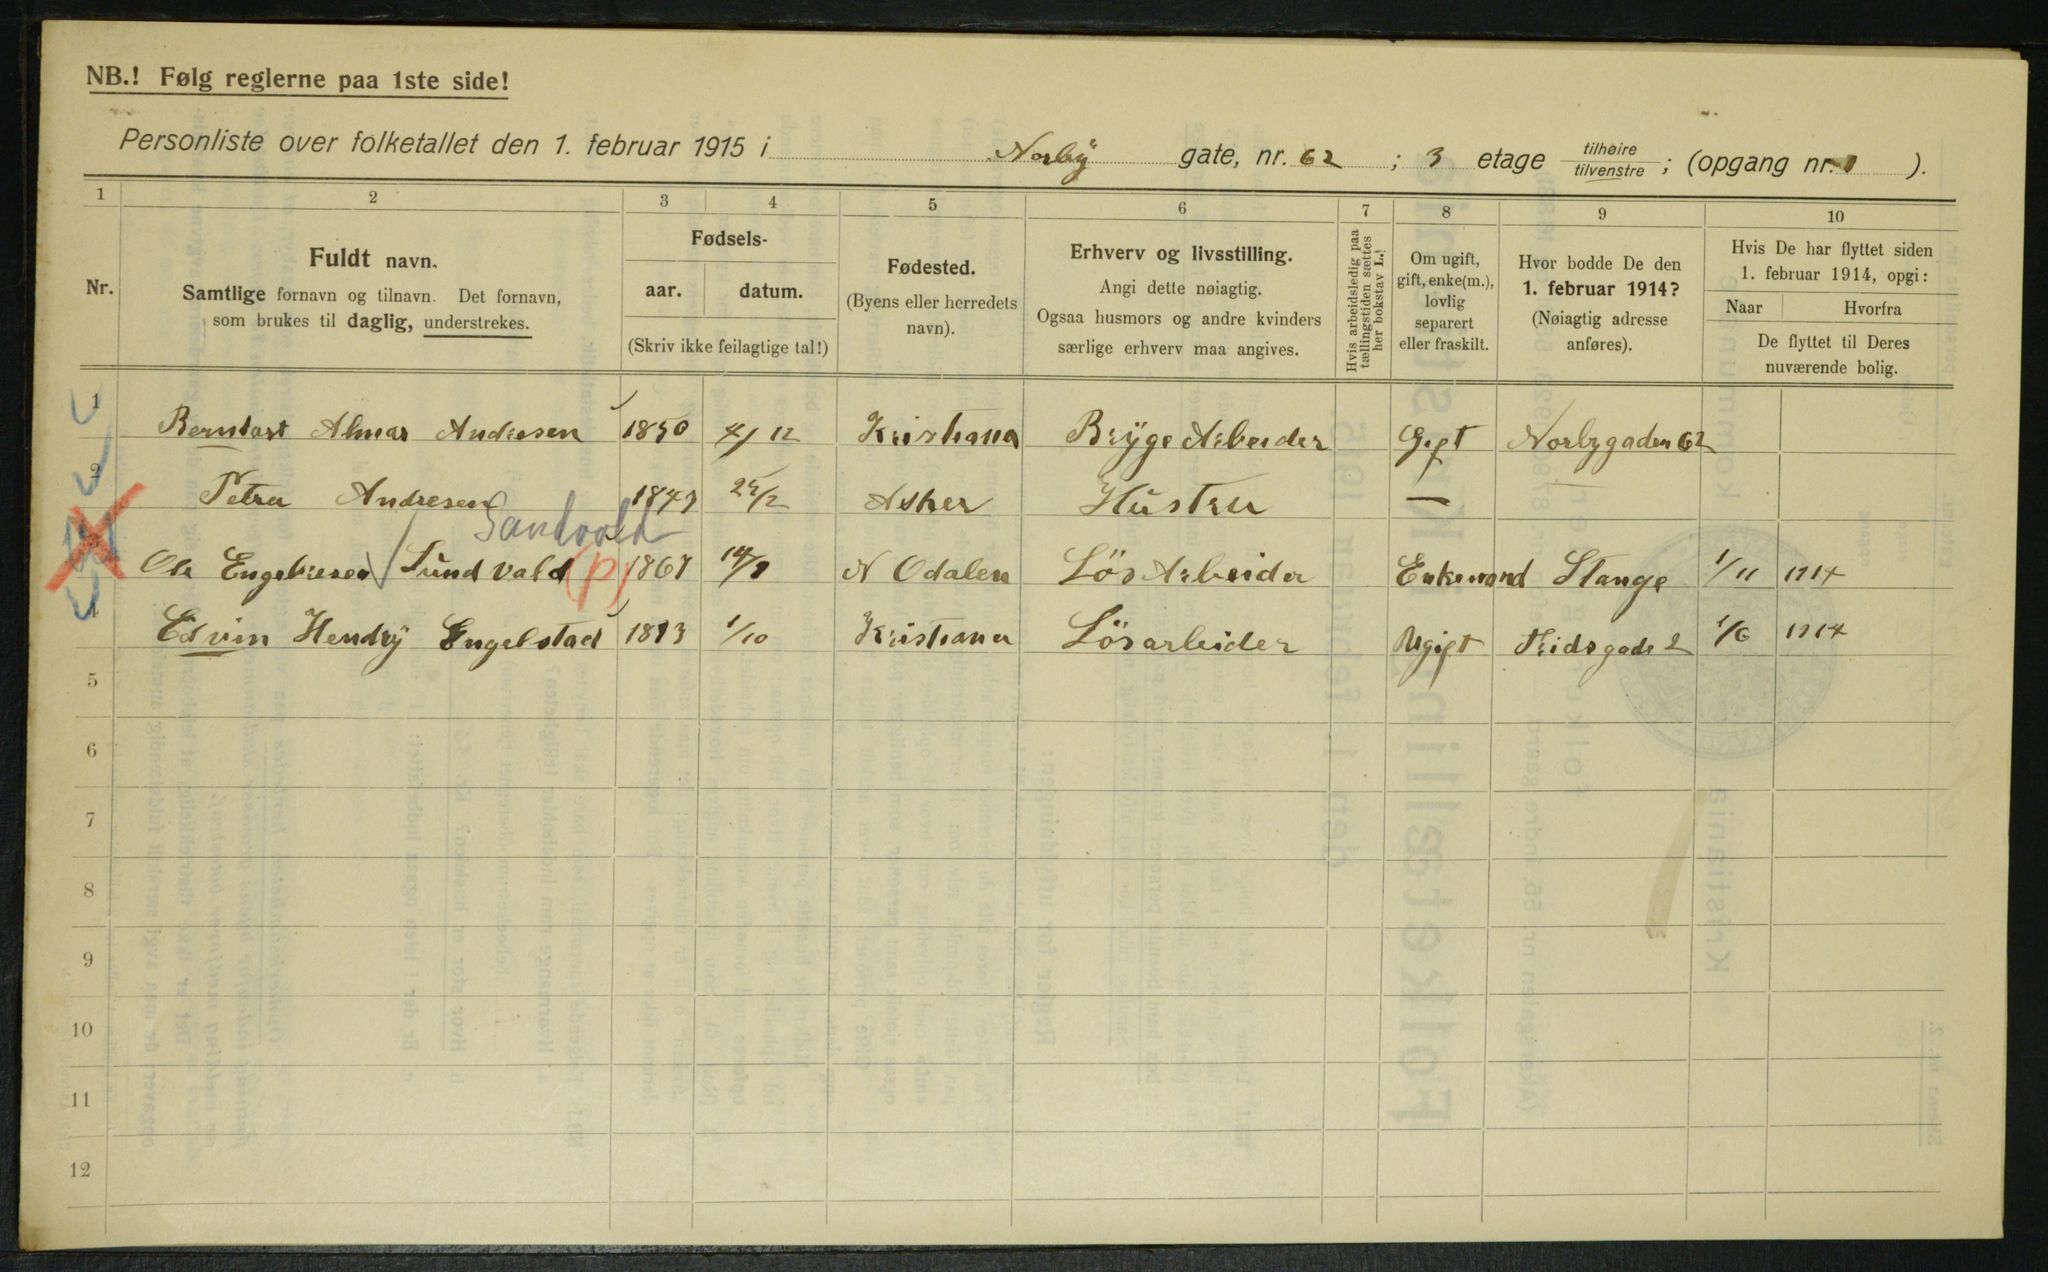 NB.! Følg reglerne paa 1ste side!
Personliste over folketallet den 1. februar 1915 i Norby gate, nr. 62 ; 3 etage tilhøire tilvenstre ; (opgang nr. 1 ).
1 2 3 4 5 6 7 8 9 10
Nr.
Fuldt navn.
Samtlige fornavn og tilnavn. Det fornavn,
som brukes til daglig, understrekes.
Fødsels-
aar. datum.
(Skriv ikke feilagtige tal!)
Fødested.
(Byens eller herredets
navn).
Erhverv og livsstilling.
Angi dette nøiagtig.
Ogsaa husmors og andre kvinders
særlige erhverv maa angives.
Hvis arbeidsledig paa
tællingstiden sættes
her bokstav L.!
Om ugift,
gift, enke(m.),
lovlig
separert
eller fraskilt.
Hvor bodde De den
1. februar 1914?
(Nøiagtig adresse
anføres).
Hvis De har flyttet siden
1. februar 1914, opgi:
Naar Hvorfra
De flyttet til Deres
nuværende bolig.
1 Almar Andresen 1850 4/12 Kristiana Bryge Arbeider Gift Norbygaden 62
2 Petra Andresen Asker Hustru —
Sandvold
3 Ole Engebresen Sundvald (p) 1867 N Odalen Løs Arbeider Enkemand Stange 1/11 1914
4 Edvin Hendry Engelstad 1/10 Kristiana Løsarbeider Ugift 1/6 1914
5
6
7
8
9
10
11
12